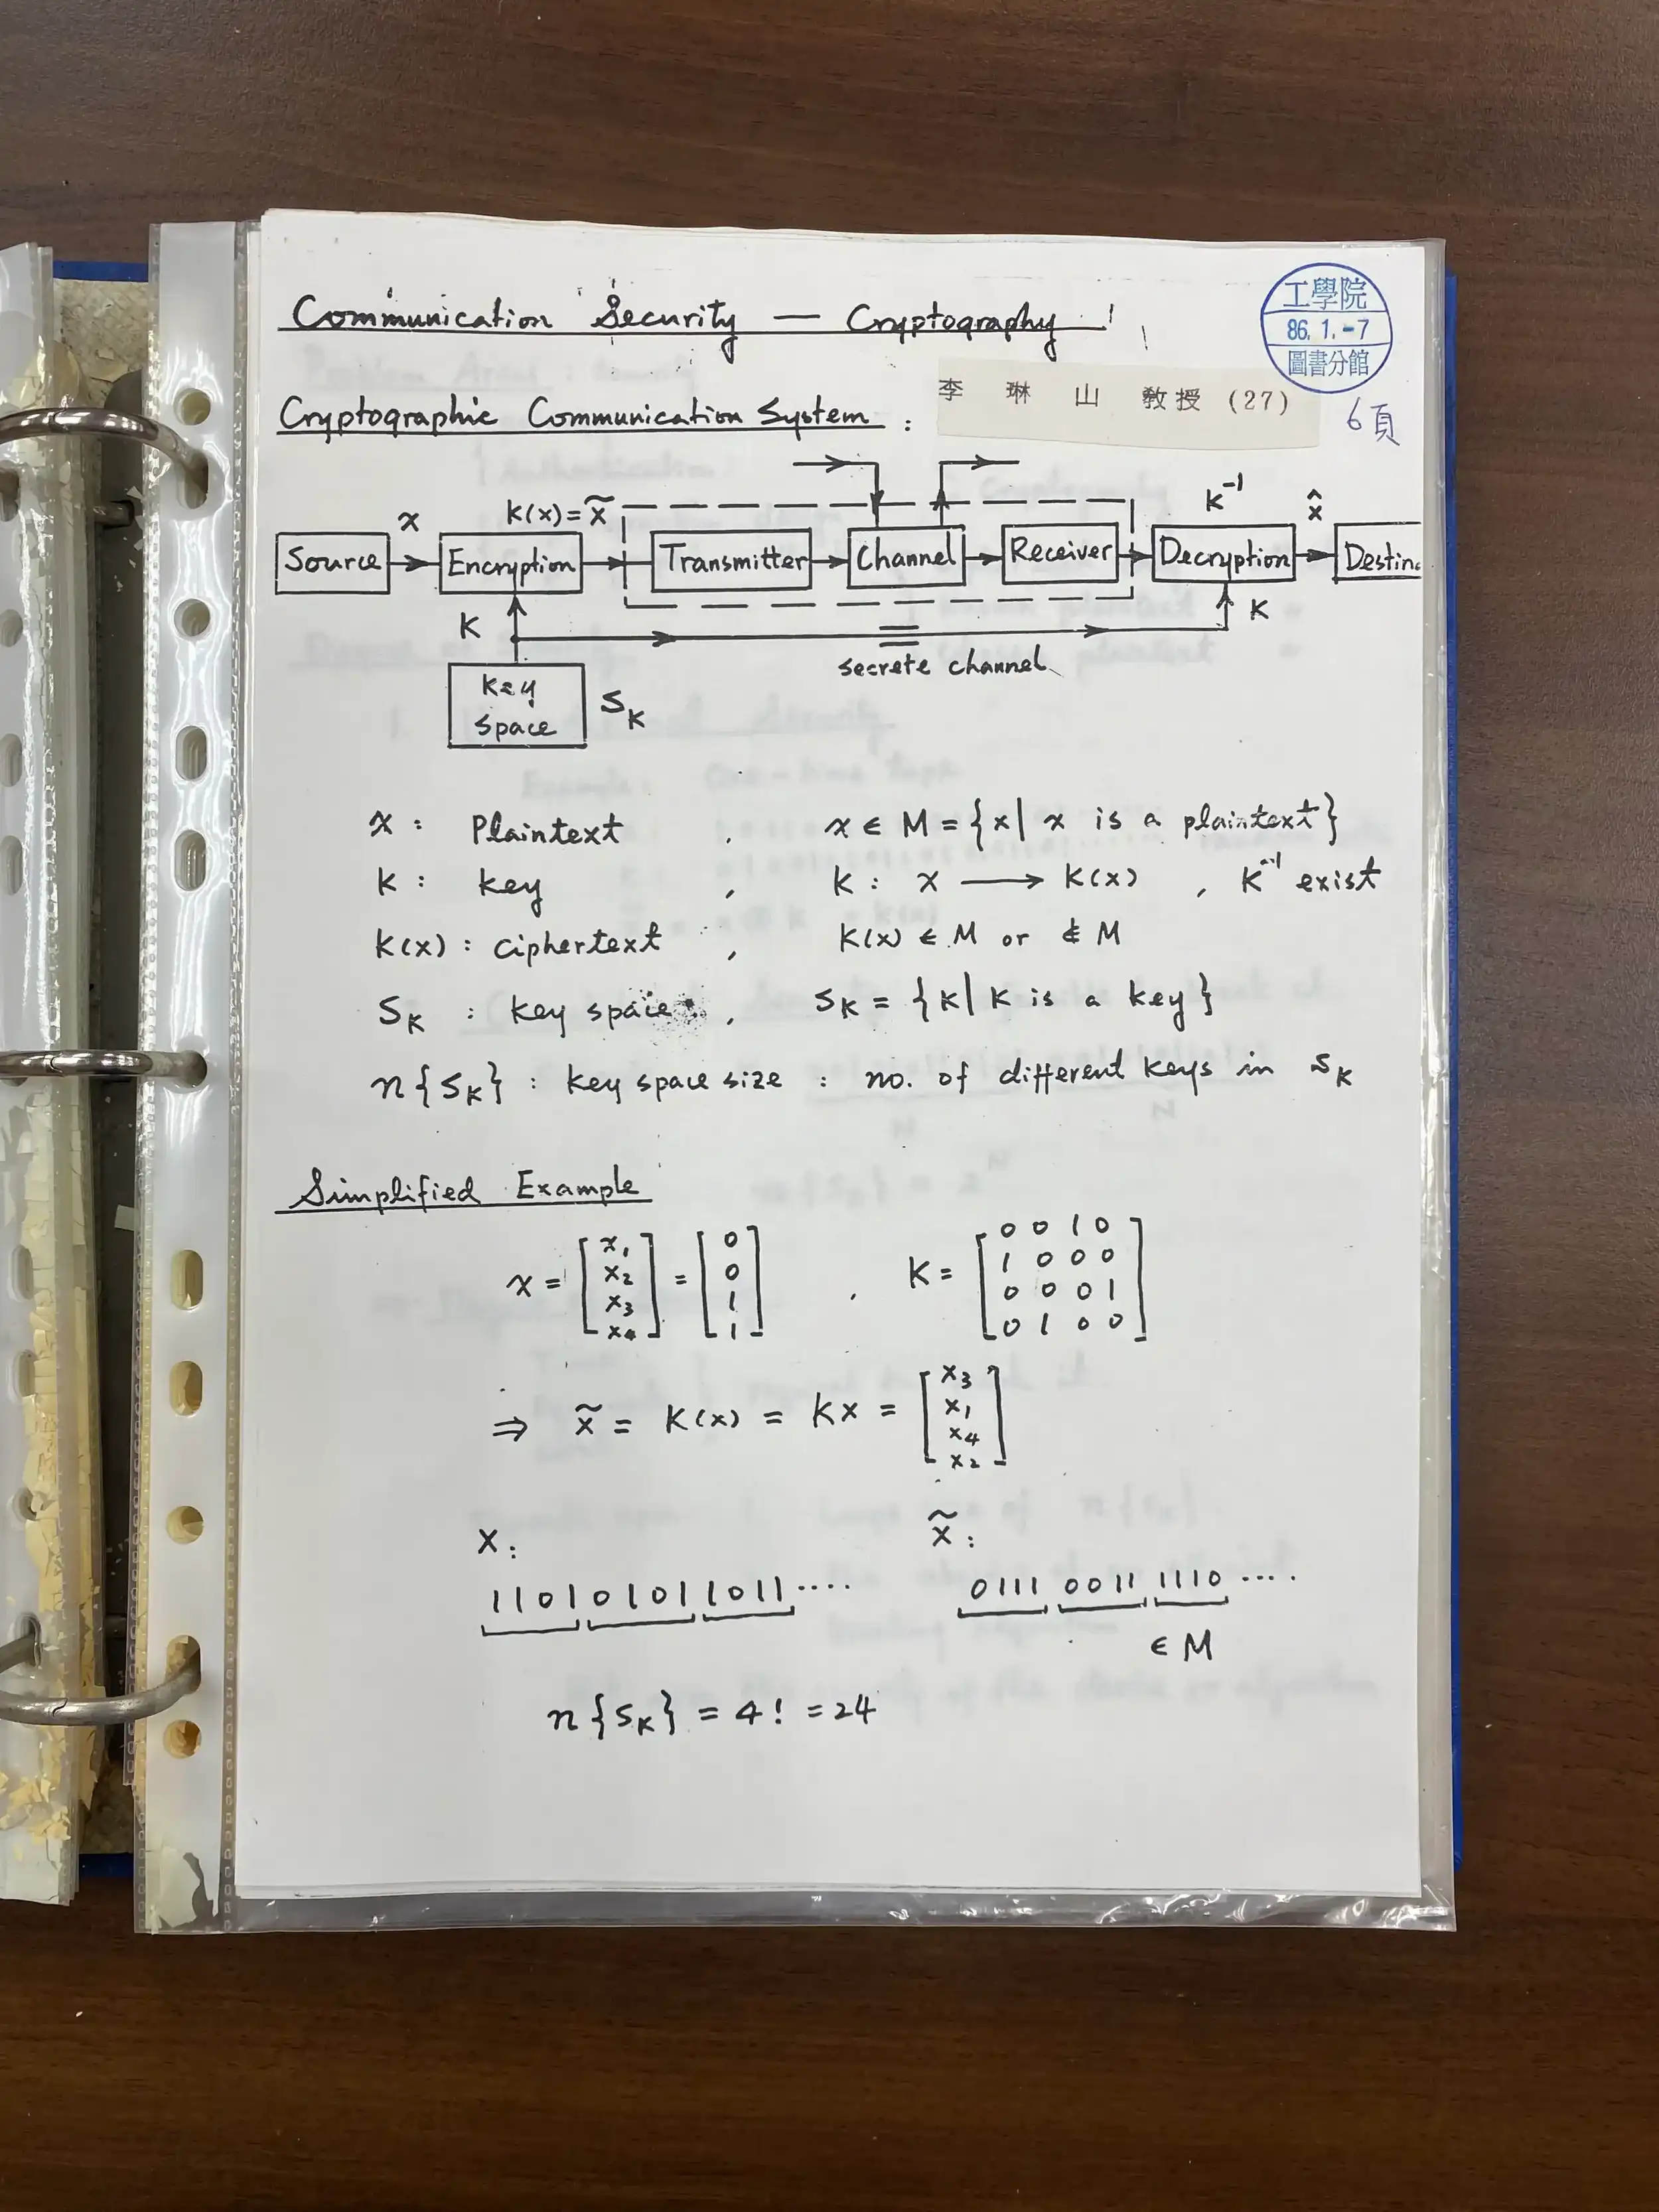 Communication Security — Cryptography
工學院
86.1.-7
圖書分館
李 琳 山 教授 (27)
6頁
Cryptographic Communication System :
x
K(x) = x̃
K⁻¹
x̂
Source
Encryption
Transmitter
Channel
Receiver
Decryption
Destinc
K
K
secrete channel
Key
space
S_K
x : Plaintext , x ∈ M = {x| x is a plaintext}
K : key , K : x ⟶ K(x) , K⁻¹ exist
K(x) : ciphertext , K(x) ∈ M or ∉ M
S_K : key space , S_K = {K| K is a key}
n{S_K} : key space size : no. of different keys in S_K
Simplified Example
x = [x₁ x₂ x₃ x₄] = [0 0 1 1] , K =
0 0 1 0
1 0 0 0
0 0 0 1
0 1 0 0
⇒ x̃ = K(x) = Kx = [x₃ x₁ x₄ x₂]
X : x̃ :
1101 0101 1011 ···· 0111 0011 1110 ····
∈ M
n{S_K} = 4! = 24